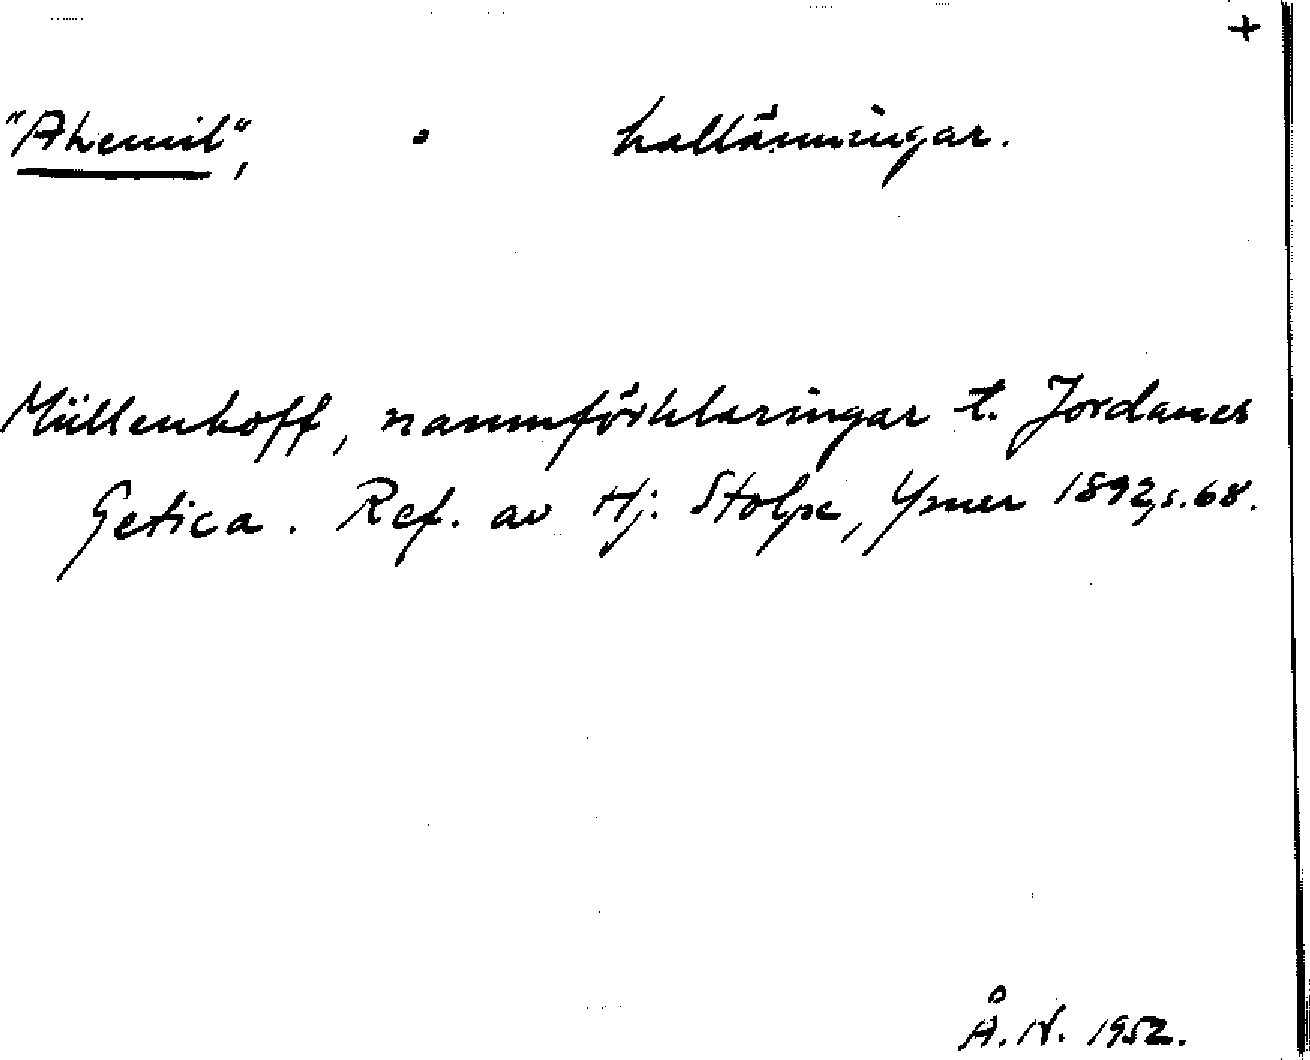 +
"Ahemil", • halläningar.
Müllenhoff, namnförklaringar t. Jordanes
Getica. Ref. av Hj. Stolpe, Ymer 1892, s. 68.
Å. N. 1952.